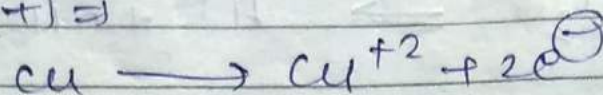 +) =)
Cu ⟶ Cu⁺² + 2e⊖